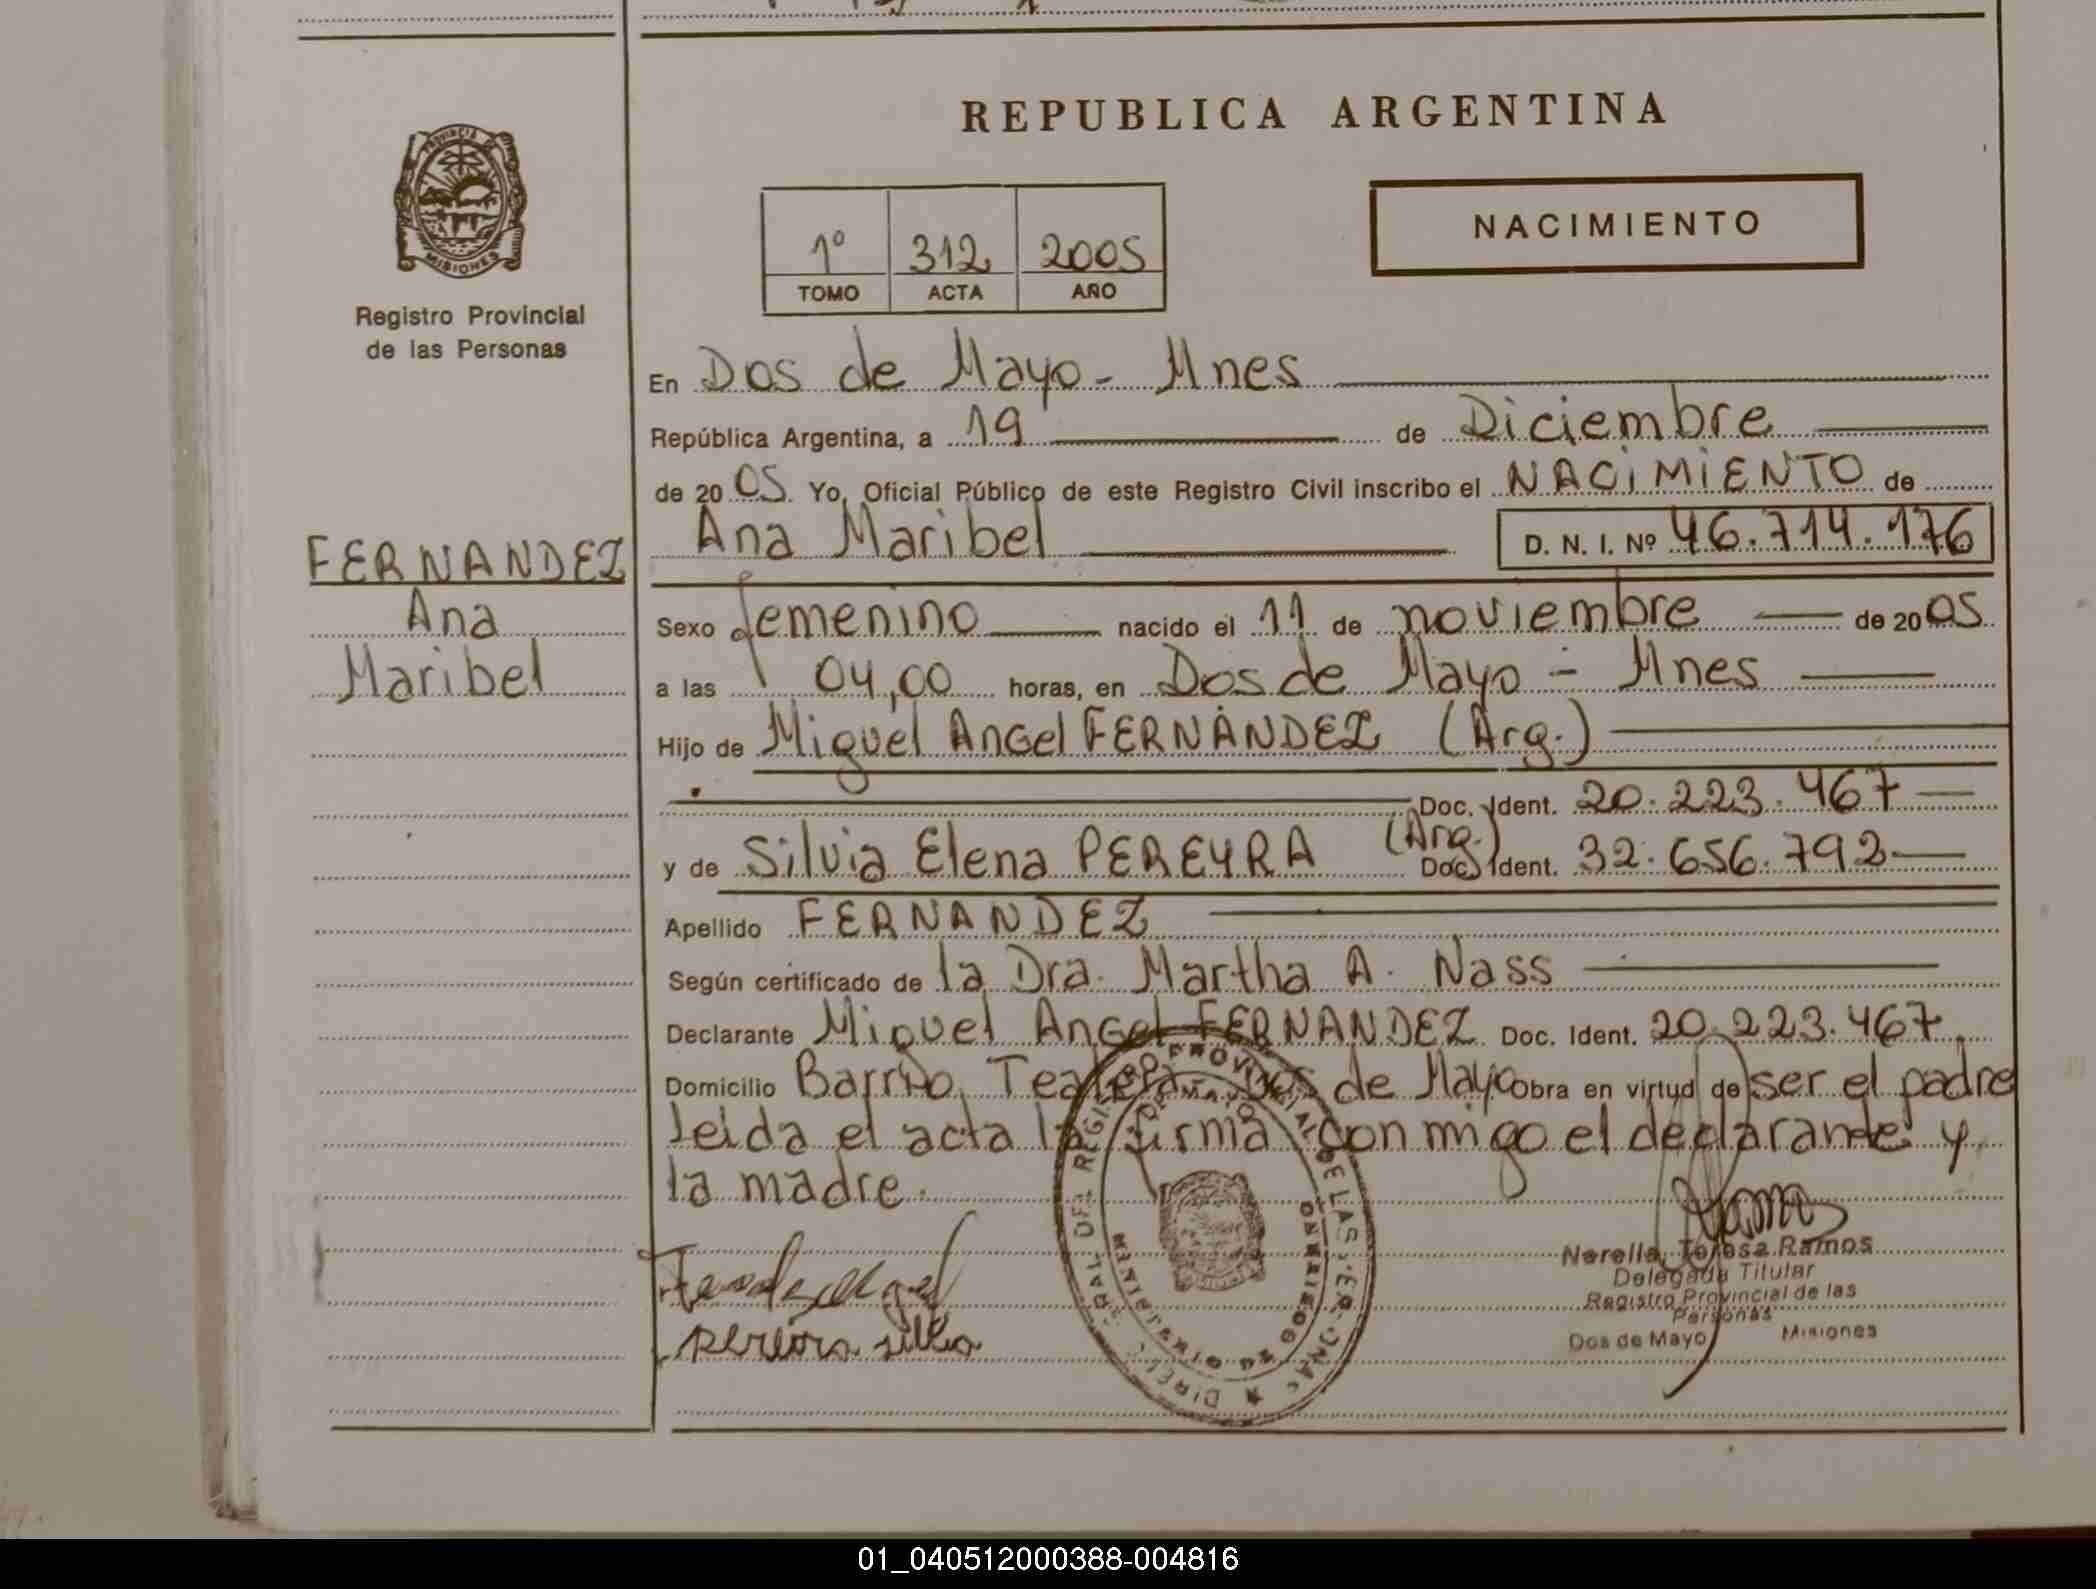 REPUBLICA ARGENTINA
PROVINCIA DE
MISIONES
Registro Provincial
de las Personas
NACIMIENTO
1º 312 2005
TOMO ACTA AÑO
En Dos de Mayo - Mnes
República Argentina, a 19 de Diciembre
de 20 05 Yo, Oficial Público de este Registro Civil inscribo el NACIMIENTO de
Ana Maribel D. N. I. Nº 46.714.176
FERNANDEZ
Ana
Maribel
Sexo femenino nacido el 11 de noviembre de 20 05
a las 04,00 horas, en Dos de Mayo - Mnes
Hijo de Miguel Angel FERNÀNDEZ (Arg.)
Doc. Ident. 20.223.467
y de Silvia Elena PEREYRA (Arg.) Doc. Ident. 32.656.792
Apellido FERNANDEZ
Según certificado de la Dra. Martha A. Nass
Declarante Miguel Angel FERNANDEZ Doc. Ident. 20.223.467
Domicilio Barrio de Mayo Obra en virtud de ser el padre
leida el acta la firma con migo el declarande y
la madre.
Ramos
Norella Teresa Ramos
Delegada Titular
Registro Provincial de las
Personas
Dos de Mayo Misiones
01_040512000388-004816